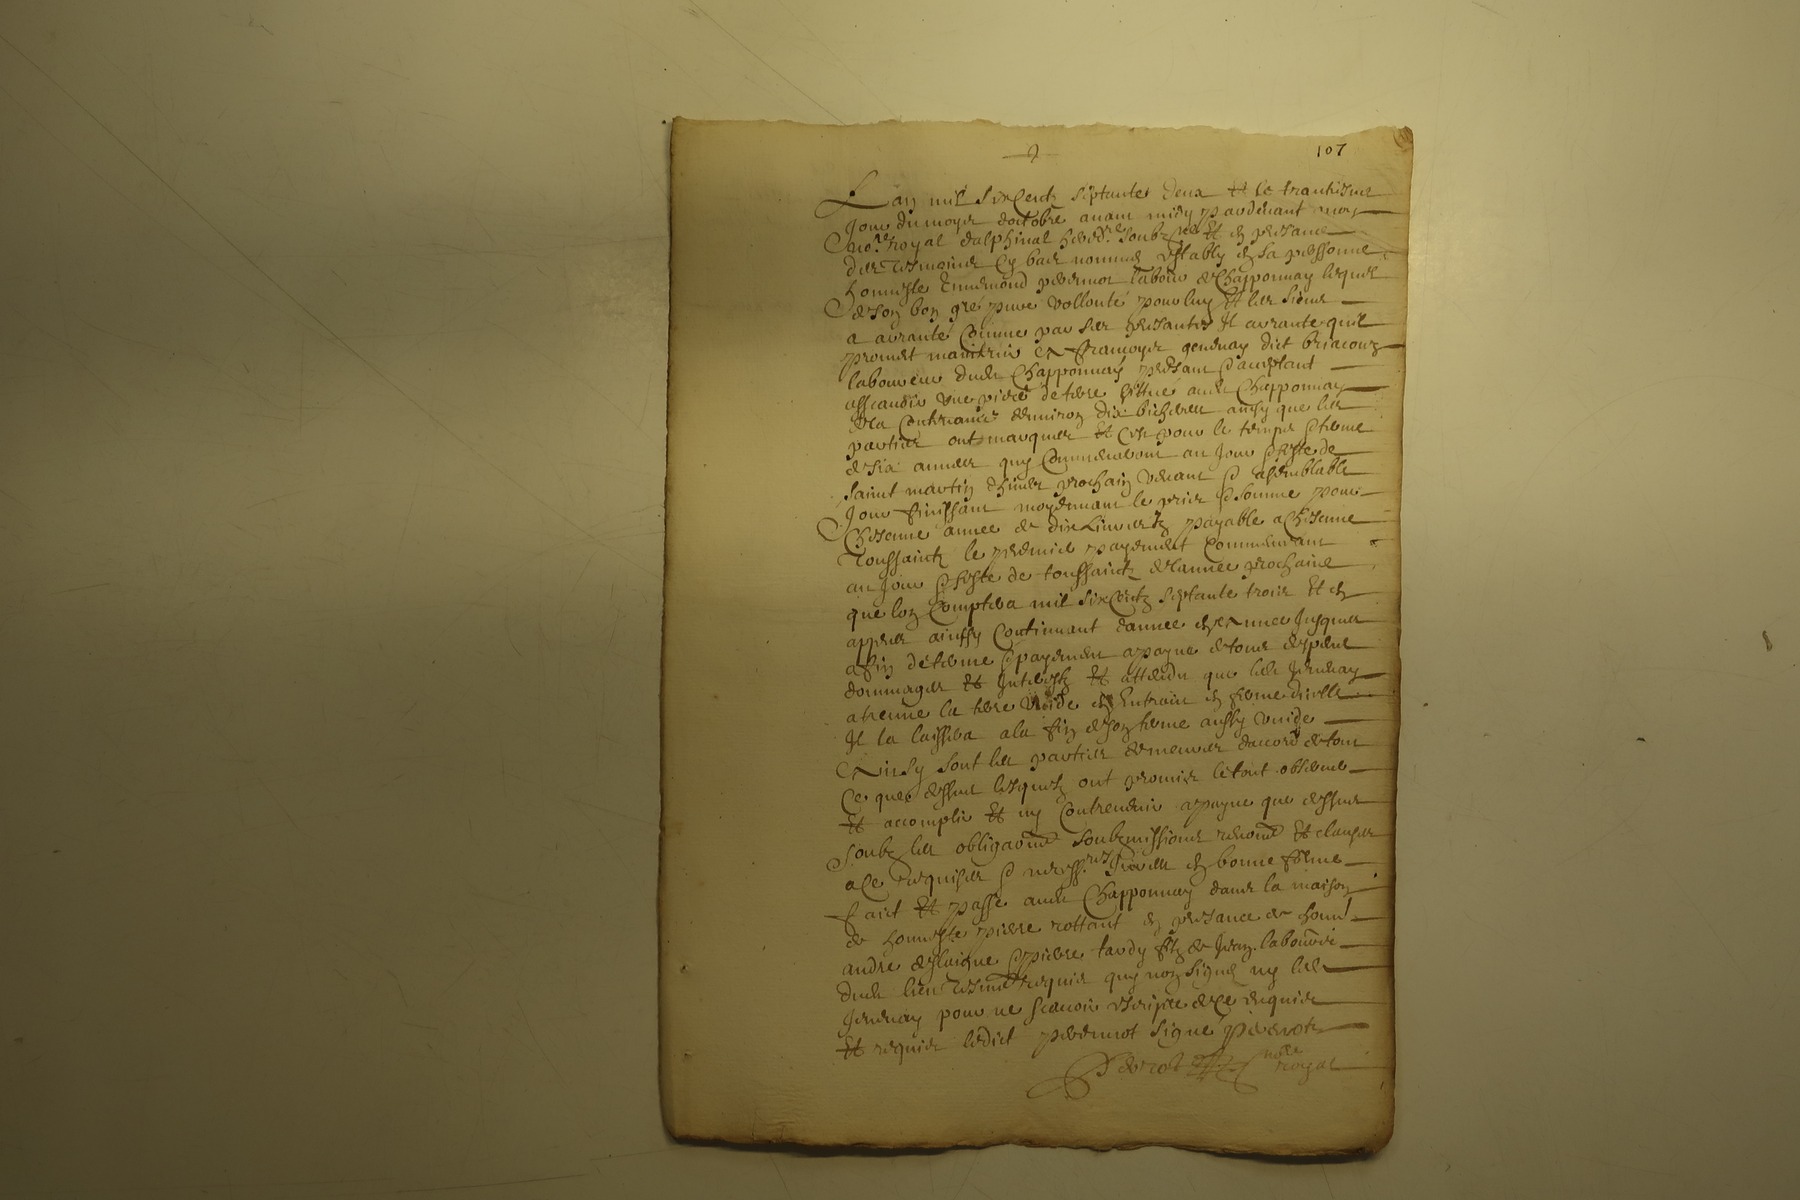 107
Lan mil six Centz septante deux et le trantiesme
Jour du moys doctobre avant midy pardevant moy
no.re royal dalphinal hered.re soubz.ne et en presance
des tesmoins Cy bas nommes estably en sa personne
honneste Ennemond pevernot labour de Chapponnay lequel
de son bon gré pure vollonté pour luy et les siens
a arranté Comme par ses presantes Il arrante quil
promet maintenir a francoys genevay dict briacour
laboureur dudt Chapponnay presant acceptant
assavoir une piece de terre sittué audt Chapponnay
de la Contenance denviron dix bicherees ainsy que les
parties ont marques et Cest pour le temps terme
de six annees quy Commenceront au Jour feste de
saint martin dhiver prochain venant a semblable
Jour finissant moyennant le prix somme pour
Chescune annee de dix Livres tz payable a Chescune
toussaintz le premier payement Commencant
au Jour feste de toussaintz de lannee prochaine
que lon Comptera mil six Centz septante trois et en
appres ainssy Continuant dannee en annee Jusques
a fin de terme payement a payne de tous despens
dommages et Interestz et attendu que ledt Jenevay
a trenne la terre vuide en Entrant en ferme dicelle
Il la laissera a la fin de son terme aussy vuide
Ainsy sont les parties demeures daccord de tout
Ce que dessus lesquelz ont promis le tout observer
et accomplir et ny Contrevenir a payne que dessus
soubz les obligaons soubzmissions renons et clauses
a Ce requises necess.res Jurees en bonne forme
faict et passé audt Chapponnay dans la maison
de honneste pierre rottant en presance de honn.
andre deslaigue pierre tardy filz de Jean laboureur
dudt lieu tesmoins requis quy nont signé ny ledt
Jenevay pour ne scavoir escripre de Ce enquis
et requis ledict pevernot signé
noe royal